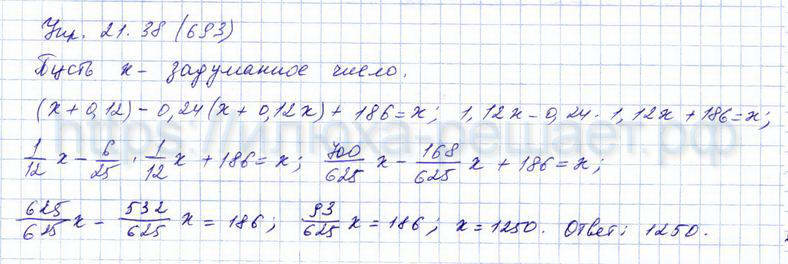 Упр. 21.38 (693)
Пусть x - задуманное число.
(x+0,12) - 0,24(x+0,12x) + 186 = x; 1,12x - 0,24 · 1,12x + 186 = x;
1/12 x - 6/25 · 1/12 x + 186 = x; 700/625 x - 168/625 x + 186 = x;
625/625 x - 532/625 x = 186; 93/625 x = 186; x = 1250. Ответ: 1250.